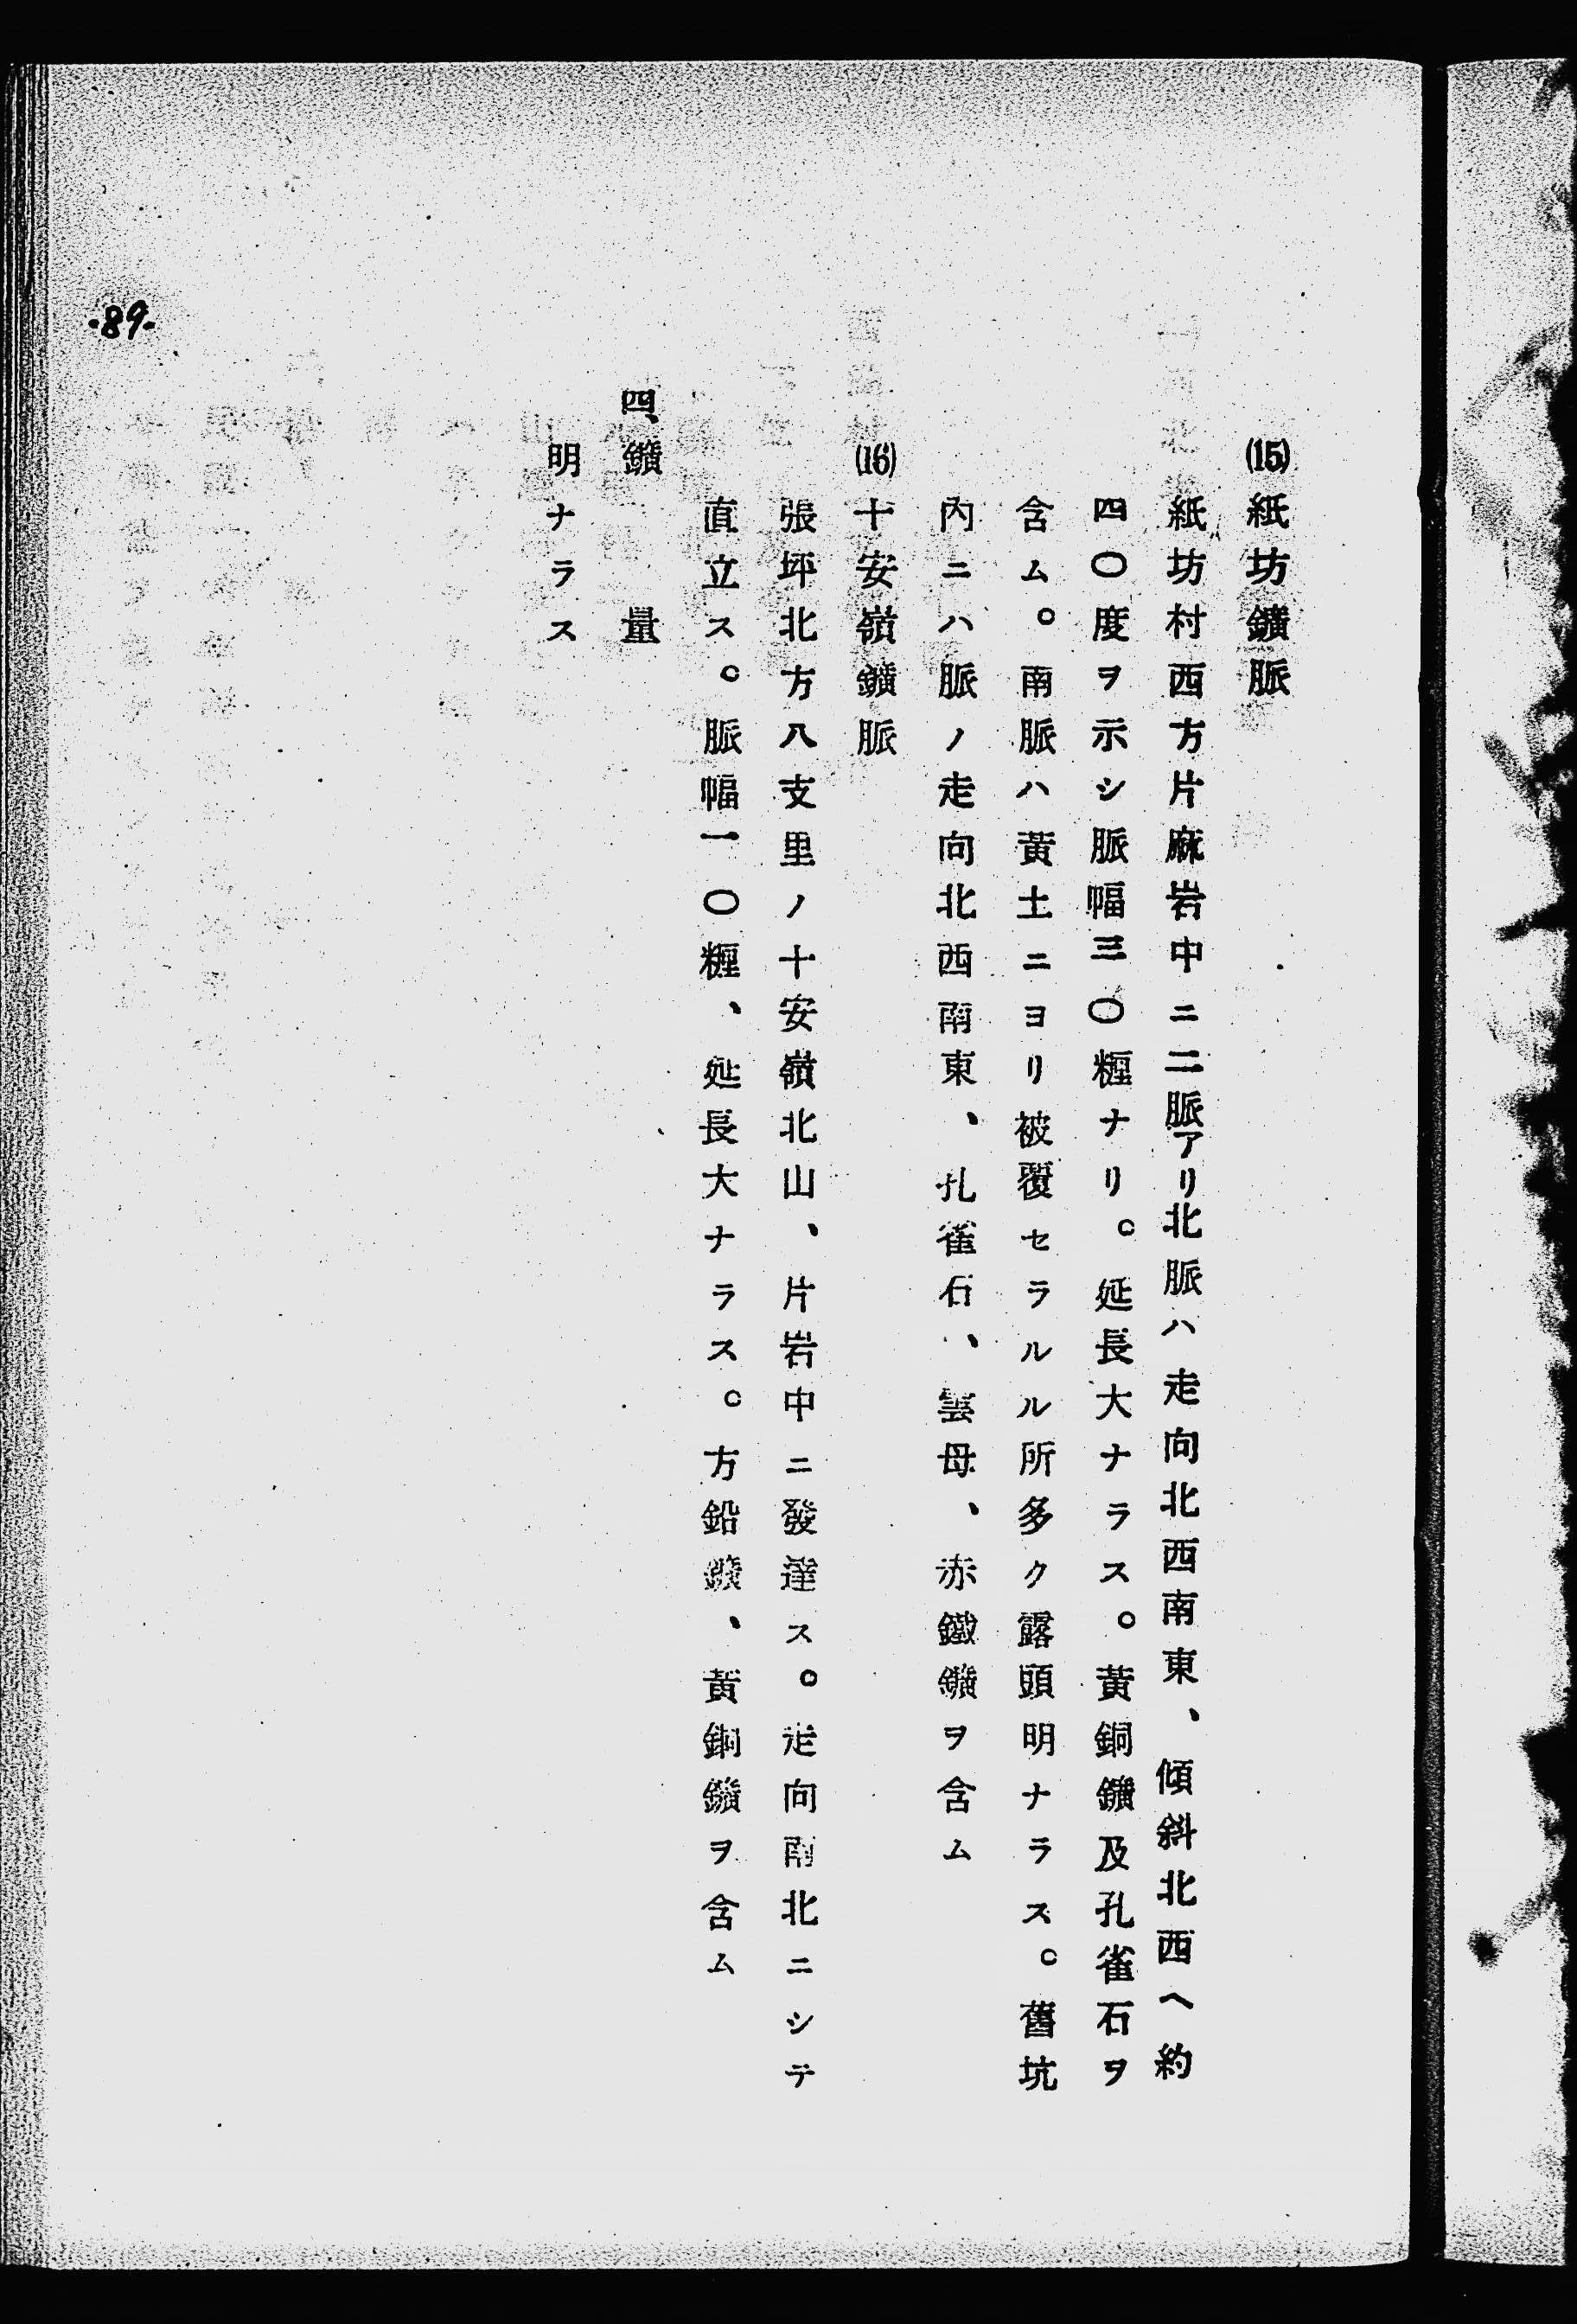 (15)紙坊鑛脈
紙坊村西方片麻岩中ニ二脈アリ北脈ハ走向北西南東、傾斜北西ヘ約
四〇度ヲ示シ脈幅三〇糎ナリ。延長大ナラス。黃銅鑛及孔雀石ヲ
含ム。南脈ハ黃土ニヨリ被覆セラルル所多ク露頭明ナラス。舊坑
內ニハ脈ノ走向北西南東、孔雀石、雲母、赤鐵鑛ヲ含ム
(16)十安嶺鑛脈
張坪北方八支里ノ十安嶺北山、片岩中ニ發達ス。走向南北ニシテ
直立ス。脈幅一〇糎、延長大ナラス。方鉛鑛、黃銅鑛ヲ含ム
四、鑛量
明ナラス
·89·